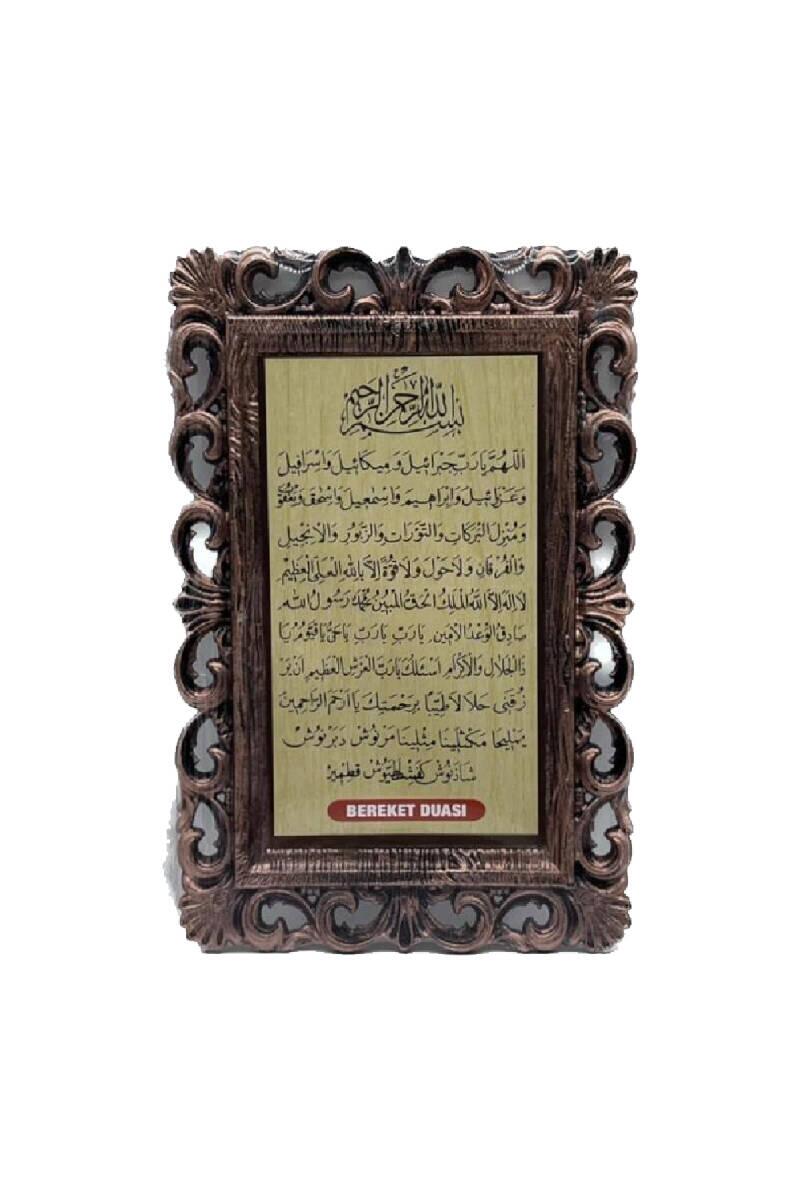 بِسْمِ اللهِ الرَّحْمٰنِ الرَّحِيمِ
اَللّٰهُمَّ يَارَبَّ جَبْرَائِيلَ وَمِيكَائِيلَ وَاِسْرَافِيلَ
وَعَزْرَائِيلَ وَاِبْرَاهِيمَ وَاِسْمٰعِيلَ وَاِسْحٰقَ وَيَعْقُوبَ
وَمُنْزِلَ الْبَرَكَاتِ وَالتَّوْرَاتِ وَالزَّبُورِ وَالْاِنْجِيلِ
وَالْفُرْقَانِ وَلَاحَوْلَ وَلَاقُوَّةَ اِلَّا بِاللهِ الْعَلِيِّ الْعَظِيمِ
لَااِلٰهَ اِلَّا اللهُ الْمَلِكُ الْحَقُّ الْمُبِينُ مُحَمَّدٌ رَسُولُ اللهِ
صَادِقُ الْوَعْدِ الْاَمِينِ يَارَبِّ يَارَبِّ يَاحَيُّ يَاقَيُّومُ يَا
ذَا الْجَلَالِ وَالْاِكْرَامِ اَسْئَلُكَ يَارَبَّ الْعَرْشِ الْعَظِيمِ اَنْ يَرْ
زُقَنِي حَلَالًا طَيِّبًا بِرَحْمَتِكَ يَااَرْحَمَ الرَّاحِمِينَ
يَمْلِيخَا مَكْثَلِينَا مِثْلِينَا مَرْنُوشْ دَبَرْنُوشْ
شَاذَنُوشْ كَفَشْطَطَيُّوشْ قِطْمِيرْ
BEREKET DUASI